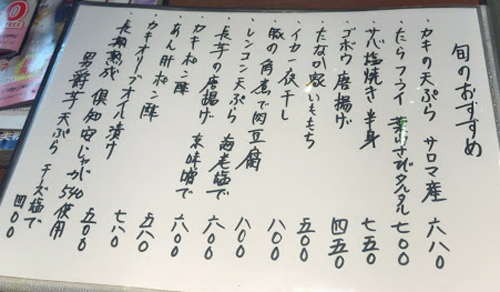 旬のおすすめ
・カキの天ぷら サロマ産 六八〇
・たらフライ 葉わさびタルタル 七〇〇
・サバ塩焼き 半身 七五〇
・ゴボウ唐揚げ 四五〇
・たなか家いももち 五〇〇
・イカ一夜干し 八〇〇
・豚の角煮で肉豆腐 八〇〇
・レンコン天ぷら 海老塩で 六〇〇
・長芋の唐揚げ 末味噌で 六〇〇
・カキポン酢 六八〇
・あん肝ポン酢 五八〇
・カキオリーブオイル漬け 七八〇
・長期熟成 倶知安じゃが540使用 五〇〇
男爵芋天ぷら チーズ塩で 四〇〇